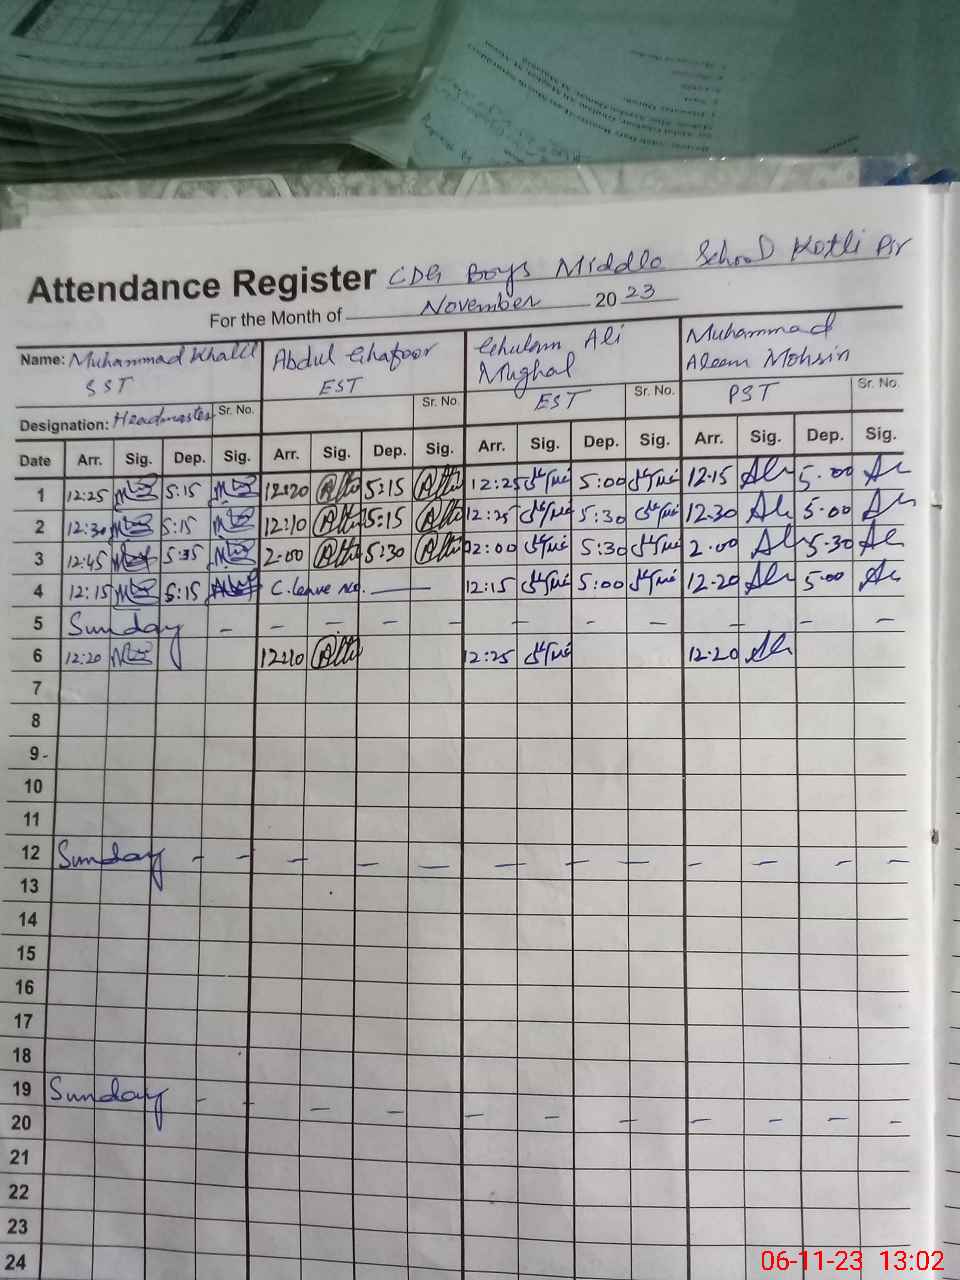 Attendance Register CDG Boys Middle School Kotli Pir
For the Month of November 2023
Name: Muhammad Khalil Abdul Ghafoor Ghulam Ali Muhammad
SST EST Mughal Aleem Mohsin
EST PST
Designation: Headmaster Sr. No. Sr. No. Sr. No. Sr. No.
Date Arr. Sig. Dep. Sig. Arr. Sig. Dep. Sig. Arr. Sig. Dep. Sig. Arr. Sig. Dep. Sig.
1 12:25 5:15 12:20 5:15 12:25 5:00 12.15 5.00
2 12:30 5:15 12:10 5:15 12:25 5:30 12.30 5.00
3 12:45 5:35 2:00 5:30 02:00 5:30 2.00 5.30
4 12:15 5:15 C.leave —— 12:15 5:00 12.20 5.00
5 Sunday - - - - - - - - - - - -
6 12:20 12:10 12:25 12.20
7
8
9 -
10
11
12 Sunday - - - - - - - - - - - -
13
14
15
16
17
18
19 Sunday - - - - - - - - - - -
20
21
22
23
24
06-11-23 13:02